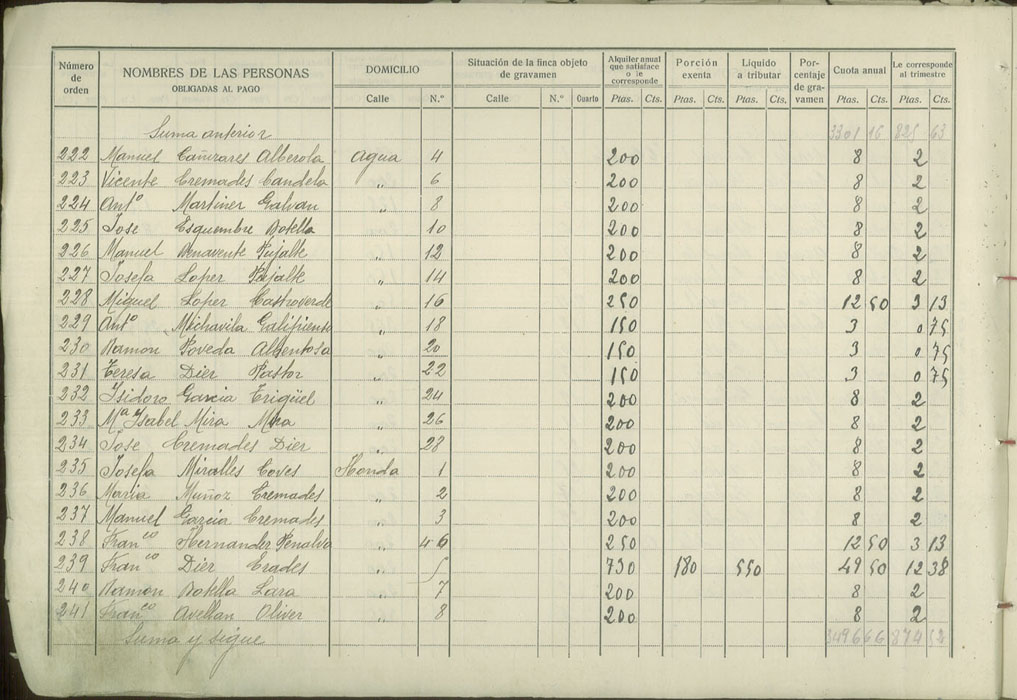 Número de orden | NOMBRES DE LAS PERSONAS OBLIGADAS AL PAGO | DOMICILIO Calle N.º | Situación de la finca objeto de gravamen Calle N.º Cuarto | Alquiler anual que satisface o le corresponde Ptas. Cts. | Porción exenta Ptas. Cts. | Líquido a tributar Ptas. Cts. | Porcentaje de gravamen | Cuota anual Ptas. Cts. | Le corresponde al trimestre Ptas. Cts.
Suma anterior 3301 16 825 63
222 Manuel Cañizares Alberola Agua 4 200 8 2
223 Vicente Cremades Candela " 6 200 8 2
224 Antº Martinez Galvan " 8 200 8 2
225 Jose Esquembre Botella " 10 200 8 2
226 Manuel Benavente Pujalte " 12 200 8 2
227 Josefa Lopez Pujalte " 14 200 8 2
228 Miguel Lopez Castroverde " 16 250 12 50 3 13
229 Antº Mechavila Galipienso " 18 150 3 0 75
230 Ramon Poveda Albentosa " 20 150 3 0 75
231 Teresa Diez Pastor " 22 150 3 0 75
232 Isidoro Garcia Erigüel " 24 200 8 2
233 Mª Isabel Mira Mira " 26 200 8 2
234 Jose Cremades Diez " 28 200 8 2
235 Josefa Miralles Coves Honda 1 200 8 2
236 Maria Muñoz Cremades " 2 200 8 2
237 Manuel Garcia Cremades " 3 200 8 2
238 Franco Hernandez Penalva " 4 6 250 12 50 3 13
239 Franco Diez Erades " 5 730 180 550 49 50 12 38
240 Ramon Botella Lara " 7 200 8 2
241 Franco Avellan Oliver " 8 200 8 2
Suma y sigue 3496 66 874